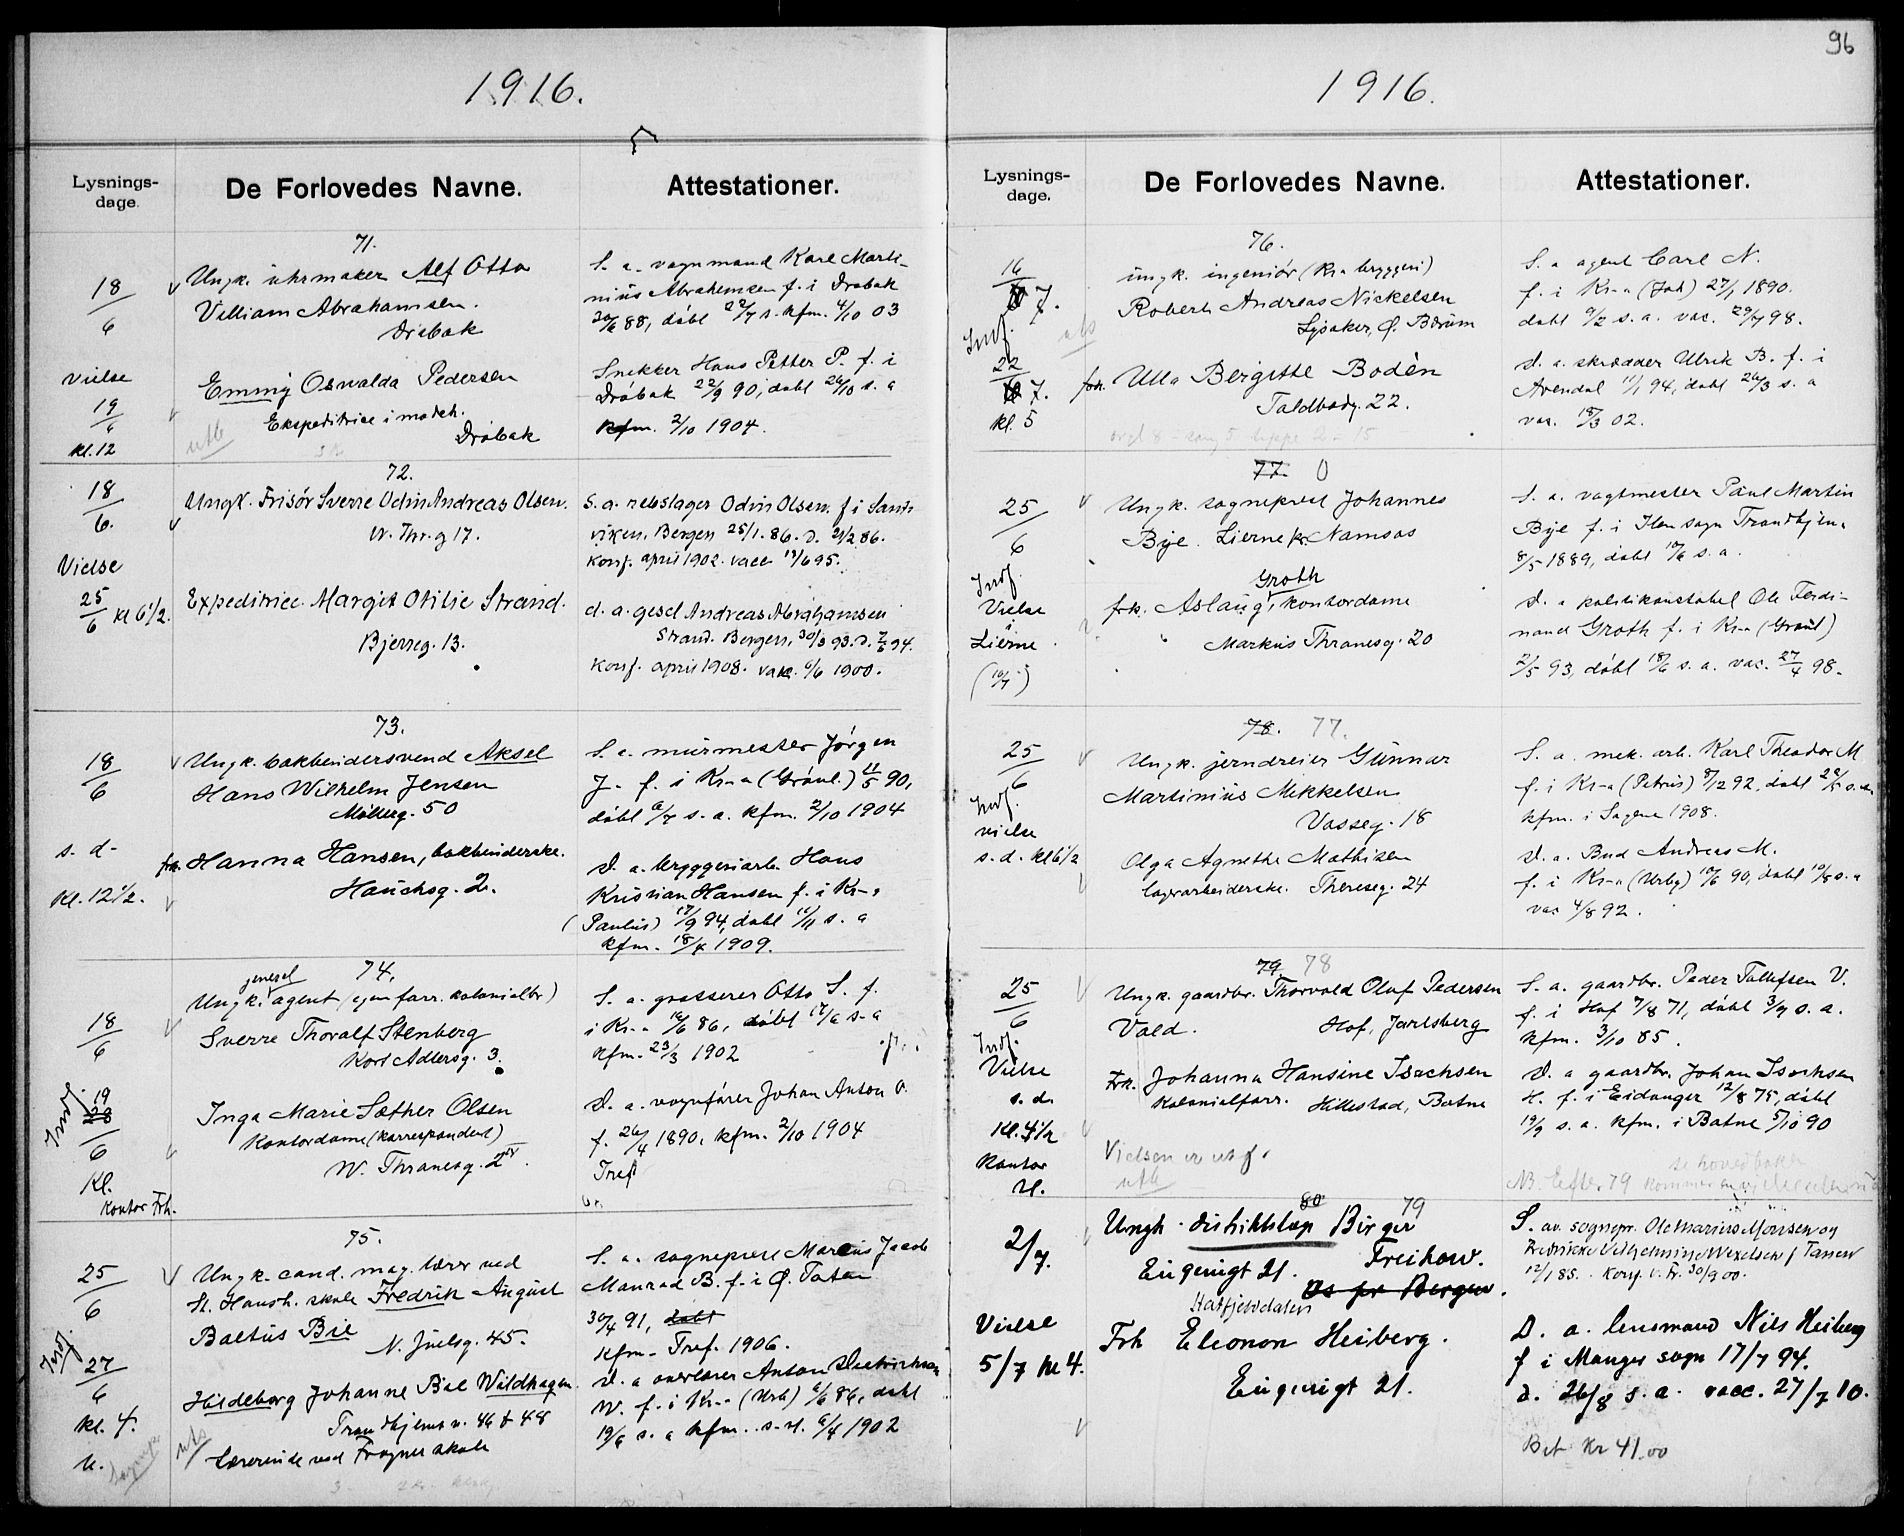 1916.
Lysnings-
dage.
De Forlovedes Navne.
Attestationer.
71.
18/6
Ungk. uhrmaker Alf Otto
Villiam Abrahamsen.
Drøbak
S. a. vognmand Karl Marti-
nius Abrahamsen f. i Drøbak
døbt s. kfm. 4/10 03
Vielse
19/6
kl. 12
Emmy Oswalda Pedersen
Ekspeditrice i
Drøbak
utb
Snekker Hans Petter P. f. i
Drøbak 22/9 90, døbt 26/10 s. a
kfm. 2/10 1904.
72.
18/6.
Ungk. Frisør Sverre Odin Andreas Olsen.
W. Thr. g 17.
S. a. rebslager Odin Olsen. f i Sand-
viken, Bergen 25/1. 86. d. 21/2 86.
Konf. april 1902. vacc 95.
Vielse
25/6 kl 6 1/2.
Expeditrice Margit Otilie Strand.
Bjerreg. 13.
d. a. gesel Andreas Abrahamsen
Strand. Bergen, 30/3 93. D. 94.
Konf. april 1908. vakc. 6/6 1900.
73.
18/6
Ungk. bokbindersvend Aksel
Hans Wilhelm Jensen
Møllerg. 50
S. a. murmester Jørgen
J. f. i Kr-a (Grønl.) 11/5 90,
døbt s. a. kfm. 2/10 1904
s. d.
Kl. 12 1/2.
frk. Hanna Hansen, bokbinderske.
Hauchsg. 2.
D. a. bryggeriarb. Hans
Kristian Hansen f. i Kr-a
(Paulus) 17/9 94, døbt 11/11 s. a
kfm. 18/4 1909.
74.
18/6
Ungk. agent (egen forr. kolonialbr)
Sverre Thoralf Stenberg
Kort Adlersg. 3.
S. a. grosserer Otto S. f.
i Kr-a 16/6 86, døbt s. a
kfm. 23/3 1902
Indf.
19
28/6
Kl.
Kontor Frh.
Inga Marie Sæther Olsen
Kontordame (korrespondent)
W. Thranesg. 2
D. a. vognfører Johan Anton O.
f. 26/4 1890, kfm. 2/10 1904
Tref
75.
25/6
Ungk. cand. mag. lærer ved
St. Hansh. skole Fredrik August
Baltus Bie
N. Juelsg. 45.
S. a. sogneprest Marcus Jacob
Monrad B. f. i Ø. Toten
30/4 91, døbt
kfm. Tref. 1906.
Indf.
27/6
Kl. 4.
Hildeborg Johanne Bie Wildhagen
Trondhjemsv. 46 & 48
Lærerinde ved Fragner skole
utb
D. a overlærer Anton
W. f. i Kr-a (Urb) 86, døbt
19/6 s. a kfm. 6/4 1902
96
1916.
Lysnings-
dage.
De Forlovedes Navne.
Attestationer.
76.
16/7.
Indf.
ungk. ingeniør (Kr-a bryggeri)
Robert Andreas Nickelsen
Lysaker, Ø. Bærum
utb
S. a agent Carl N.
f. i Kr-a (Joh) 27/1 1890.
døbt s. a. vac. 29/7 98.
22/7.
kl. 5
frk. Ulla Bergitte Bodèn
Toldbodg. 22.
D. a. skrædder Ulrik B. f. i
Arendal 11/1 94, døbt 26/3 s. a
vac. 18/3 02.
77. 0
25/6
Ungk. sogneprest Johannes
Bye. Lierne pr. Namsos
S. a. vagtmester Paul Martin
Bye f. i Ilen sogn Trondhjem
8/5 1889, døbt 10/6 s. a.
Indf.
Vielse
i
Lierne
(10/7)
frk. Aslaug Groth, kontordame
Markus Thranesg. 20
D. a politikonstabel Ole Ferdi-
nand Groth f. i Kr-a (Grønl)
2/5 93, døbt 18/6 s. a. vac. 27/4 98.
78. 77.
25/6
Ungk. jerndreier Gunnar
Martinius Mikkelsen
Vosseg. 18
S. a. mek. arb. Karl Theodor M
f. i Kr-a (Petrus) 8/12 92, døbt
kfm. i Sagene 1908.
Indf.
vielse
s. d. kl 6 1/2
Olga Agnethe Mathisen
lagerarbeiderske. Thereseg. 24
D. a. Bud Andreas M.
f. i Kr-a (Urbg) 10/6 90, døbt 10/8 s. a
vac 4/8 92.
79. 78
25/6
Ungk. gaardbr. Thorvald Oluf Pedersen
Vold.
Hof, Jarlsberg
S. a. gaardbr. Peder Tollefsen V.
f. i Hof 7/8 71, døbt 3/9 s. a.
kfm. 3/10 85.
Indf.
Vielse
s. d.
Kl. 4 1/2
Kontor
Frk. Johanna Hansine Isachsen
Kolonialforr. Hillestad, Botne
D. a gaardbr. Johan Isachsen
H. f. i Eidanger 12/8 75, døbt
19/9 s. a. kfm. i Botne 5/10 90
Vielsen er utf.
utb
se hovedboken
NB. Efter 79 kommer en
80 79
2/7.
Ungk. distriktslæg Birger
Freihow.
Eugenigt 21.
Os pr Bergen.
Hatfjelddalen
S. av. sognepr. Ole Marius Monsen og
Fredrikke Vilhelmine Wexelsen f Tanen
12/1 85. Konf. v. Fr. 30/9 00.
Vielse
5/7 kl 4.
Frk Eleonon Heiberg.
Eugenigt 21.
D. a. lensmand Nils Heiberg
f i Manger sogn 17/7 94.
d. 26/8 s. a. vacc. 27/7 10.
Bet kr 41.00